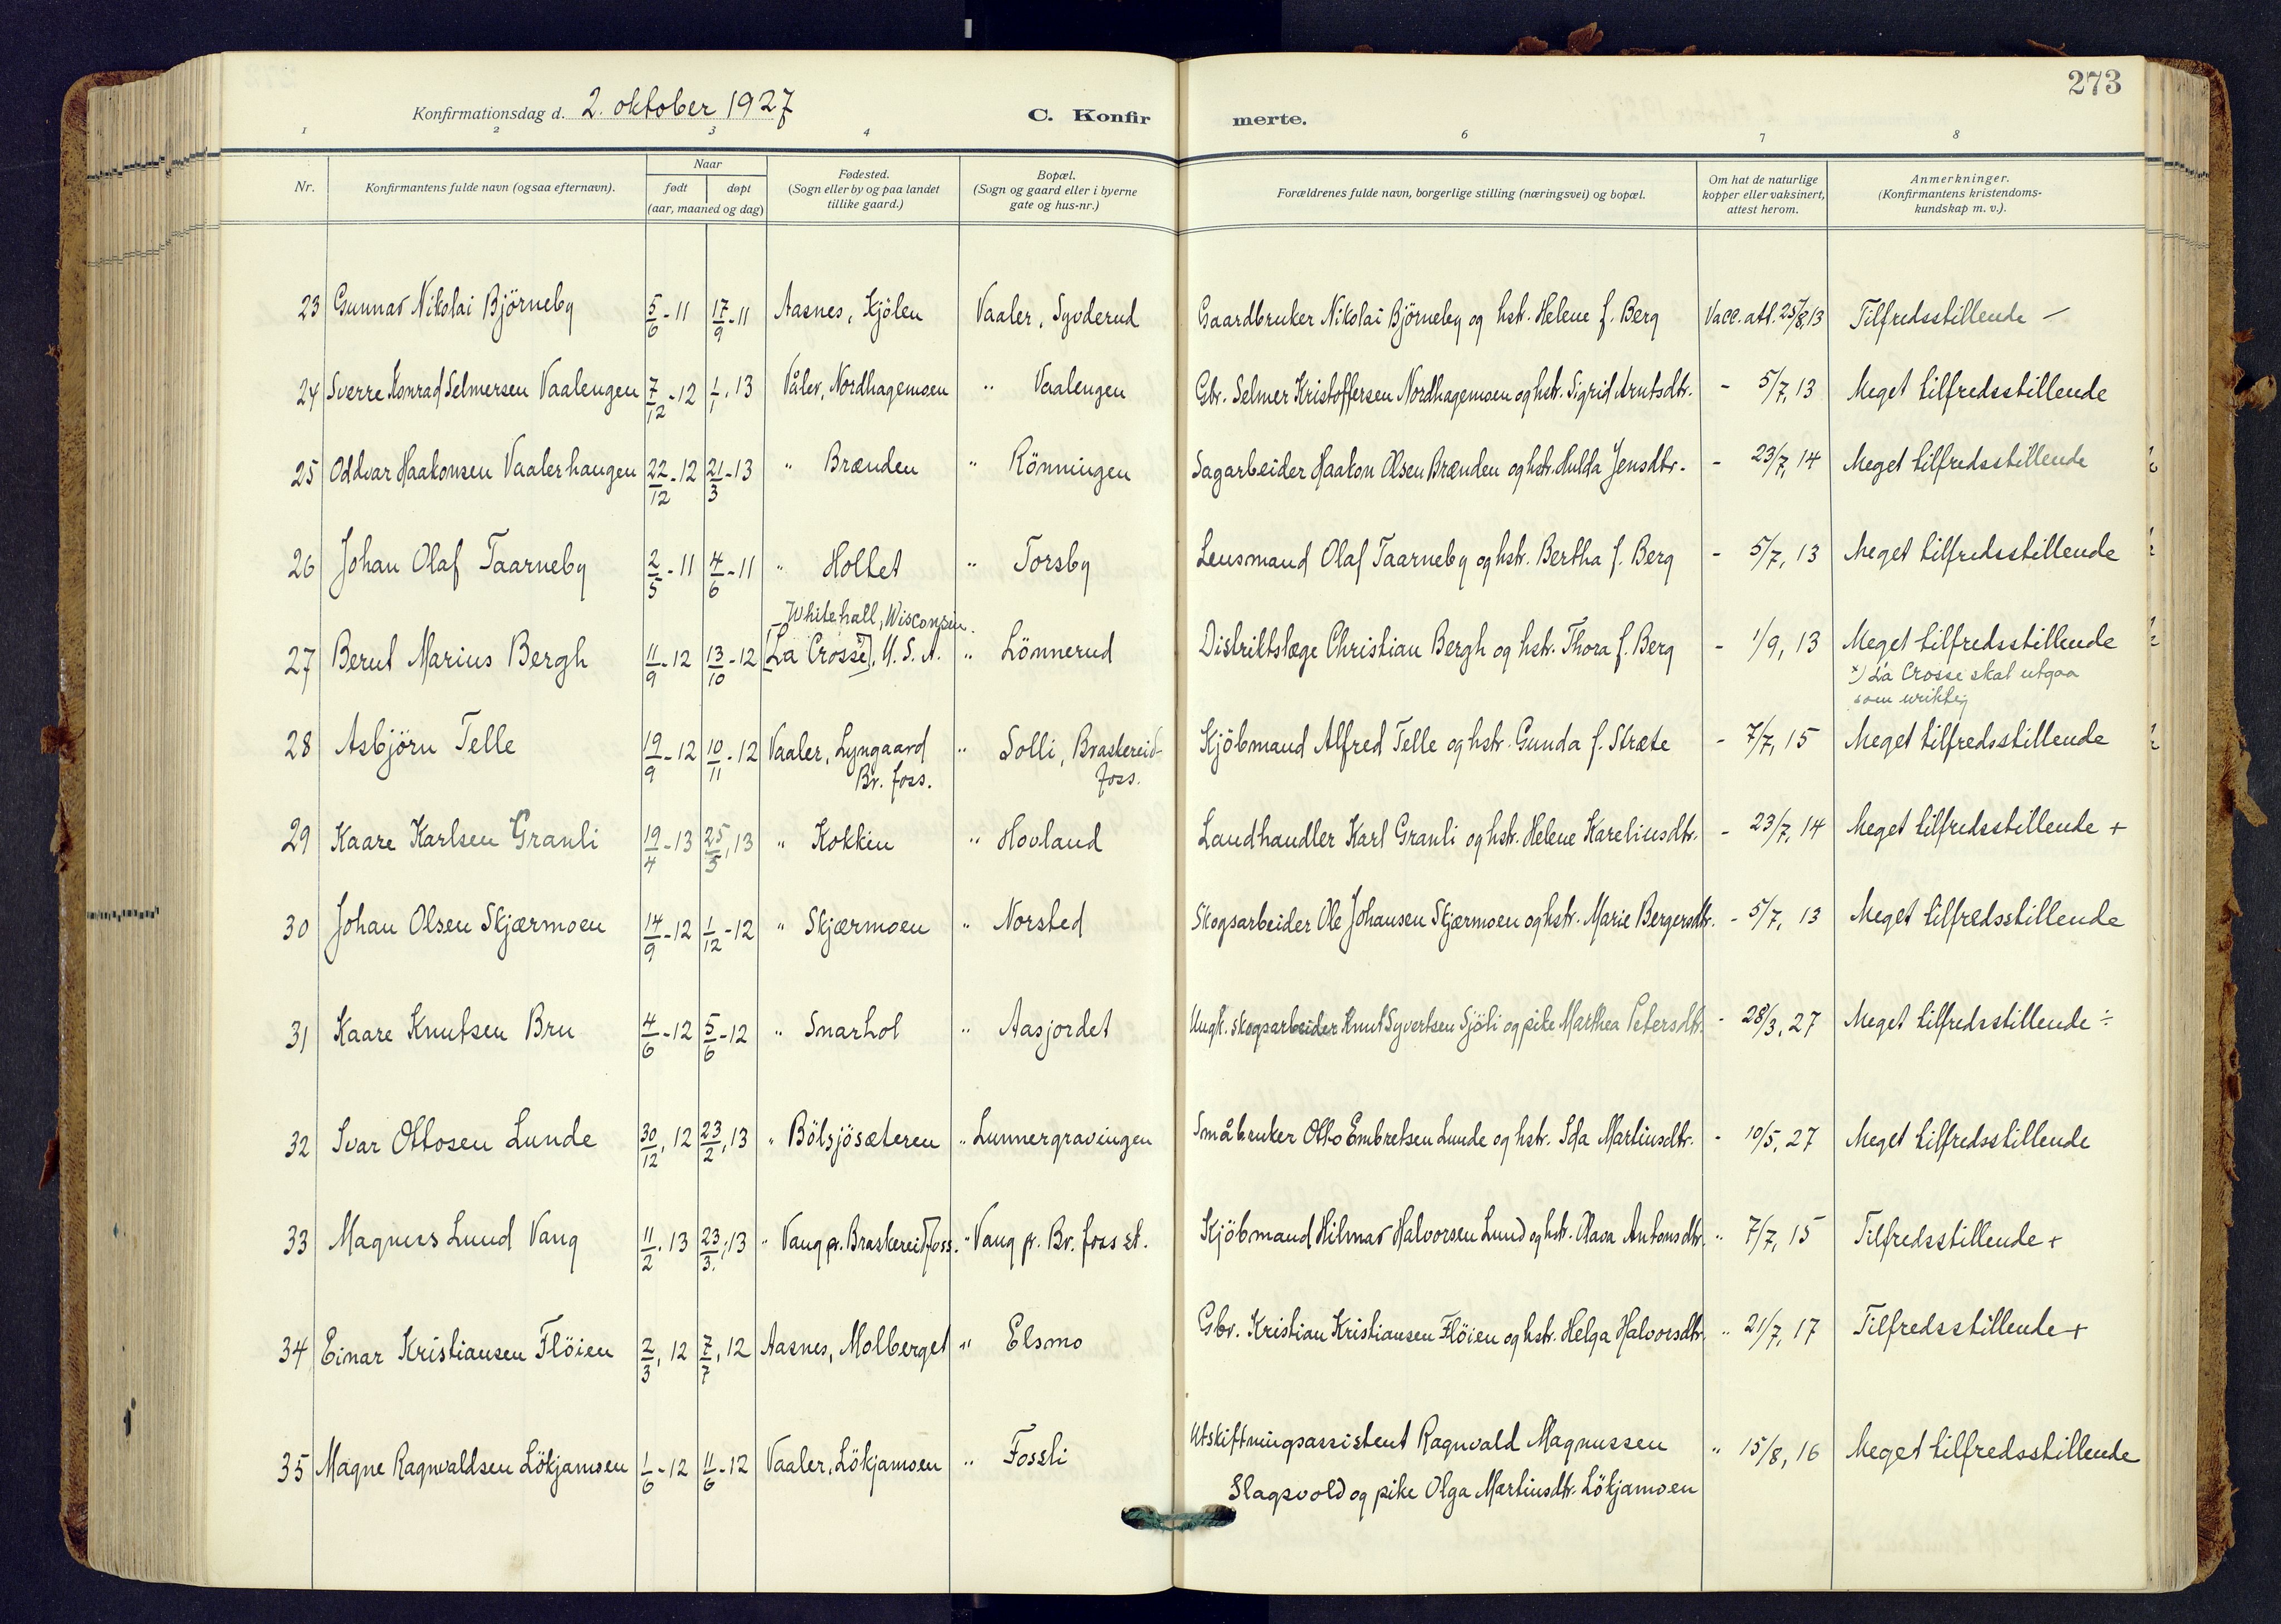 273
Konfirmationsdag d. 2. oktober 1927
C. Konfir merte.
1 2 3 4 6 7 8
Nr.
Konfirmantens fulde navn (ogsaa efternavn).
Naar
født døpt
(aar, maaned og dag)
Fødested.
(Sogn eller by og paa landet
tillike gaard.)
Bopæl.
(Sogn og gaard eller i byerne
gate og hus-nr.)
Forældrenes fulde navn, borgerlige stilling (næringsvei) og bopæl.
Om hat de naturlige
kopper eller vaksinert,
attest herom.
Anmerkninger.
(Konfirmantens kristendoms-
kundskap m. v.).
23 Gunnar Nikolai Björneby 5/6 - 11 17/9 - 11 Aasnes, Kjölen Vaaler, Syvderud Gaardbruker Nikolai Björneby og hstr. Helene f. Berg Vacc. att. 25/8, 13 Tilfredsstillende -
24 Sverre Konrad Selmersen Vaalengen 7/12 - 12 1/1, 13 Våler, Nordhagemoen " Vaalengen Gbr. Selmer Kristoffersen Nordhagemoen og hstr. Sigrid Arntsdtr. - 5/7, 13 Meget tilfredsstillende
25 Oddvar Haakonsen Vaalerhaugen 22/12 - 12 21/3 - 13 " Brænden " Rönningen Sagarbeider Haakon Olsen Brænden og hstr. Hulda Jensdtr. - 23/7, 14 Meget tilfredsstillende
26 Johan Olaf Taarneby 2/5 - 11 4/6 - 11 " Holtet " Torsby Lensmand Olaf Taarneby og hstr. Bertha f. Berg - 5/7, 13 Meget tilfredsstillende
Whitehall, Wisconsin.
27 Bernt Marius Bergh 11/9 - 12 13/10 - 12 [La Crosse], U. S. A. " Lönnerud Distriktslæge Christian Bergh og hstr. Thora f. Berg - 1/9, 13 Meget tilfredsstillende
x) La Crosse skal utgaa
som uriktig
28 Asbjörn Telle 19/9 - 12 10/11 - 12 Vaaler, Lyngaard " Solli, Braskereid- Kjöbmand Alfred Telle og hstr. Gunda f. Stræte - 7/7, 15 Meget tilfredsstillende
Br. foss. foss.
29 Kaare Karlsen Granli 19/4 - 13 25/5, 13 " Kokkin " Hovland Landhandler Karl Granli og hstr. Helene Kareliusdtr. - 23/7, 14 Meget tilfredsstillende +
30 Johan Olsen Skjærmoen 14/9 - 12 1/12 - 12 " Skjærmoen " Norsted Skogsarbeider Ole Johansen Skjærmoen og hstr. Marie Bergersdtr. - 5/7, 13 Meget tilfredsstillende
31 Kaare Knutsen Bru 4/6 - 12 5/6 - 12 " Snarhol " Aasjordet Ungk. skogsarbeider Knut Syvertsen Sjöli og pike Marthea Petersdtr. - 28/3, 27 Meget tilfredsstillende ÷
32 Ivar Ottosen Lunde 30/12, 12 23/2, 13 " Bölsjösæteren " Lunnergravingen Småbruker Otto Embretsen Lunde og hstr. Ida Martinsdtr. - 10/5, 27 Meget tilfredsstillende
33 Magnus Lund Vang 11/2, 13 23/3, 13 " Vang p. Braskereidfoss. " Vang p. Br. foss st. Kjöbmand Hilmar Halvorsen Lund og hstr. Olava Antonsdtr. " 7/7, 15 Tilfredsstillende +
34 Einar Kristiansen Flöien 2/3, 12 7/7, 12 Aasnes, Molberget " Elsmo Gbr. Kristian Kristiansen Flöien og hstr. Helga Halvorsdtr. " 21/7, 17 Tilfredsstillende +
35 Magne Ragnvaldsen Lökjamoen 1/6 - 12 11/6 - 12 Vaaler, Lökjamoen " Fossli Utskiftningsassistent Ragnvald Magnussen " 15/8, 16 Meget tilfredsstillende
Slagsvold og pike Olga Martinsdtr. Lökjamoen